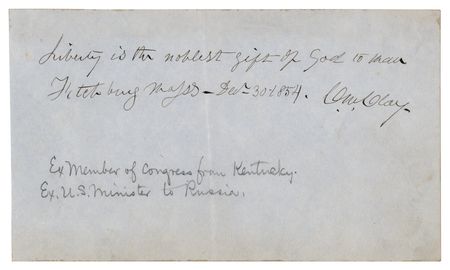 Liberty is the noblest gift of God to man
Fitchburg Mass - Decr 30 1854. C. M. Clay
Ex Member of Congress from Kentucky.
Ex. U.S. Minister to Russia.